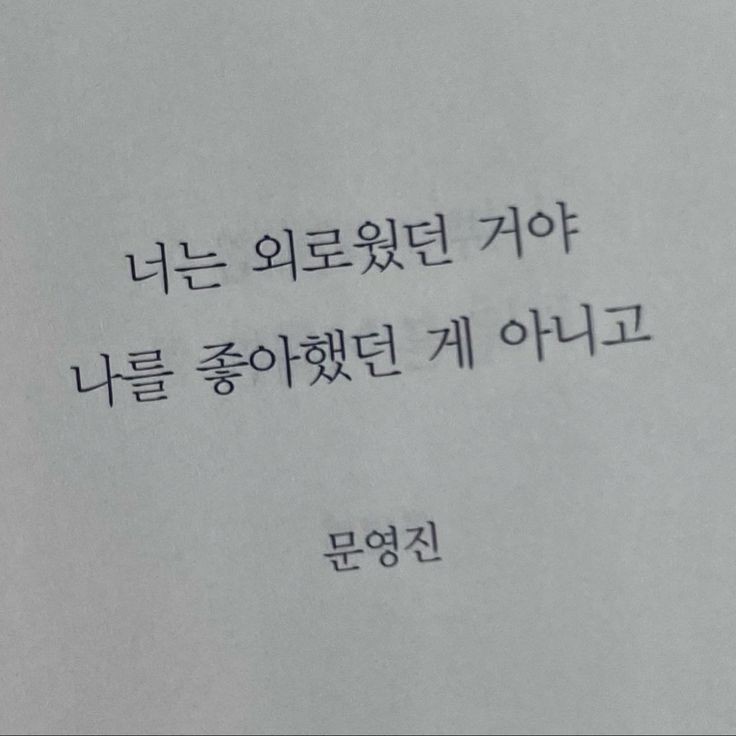 너는 외로웠던 거야
나를 좋아했던 게 아니고
문영진